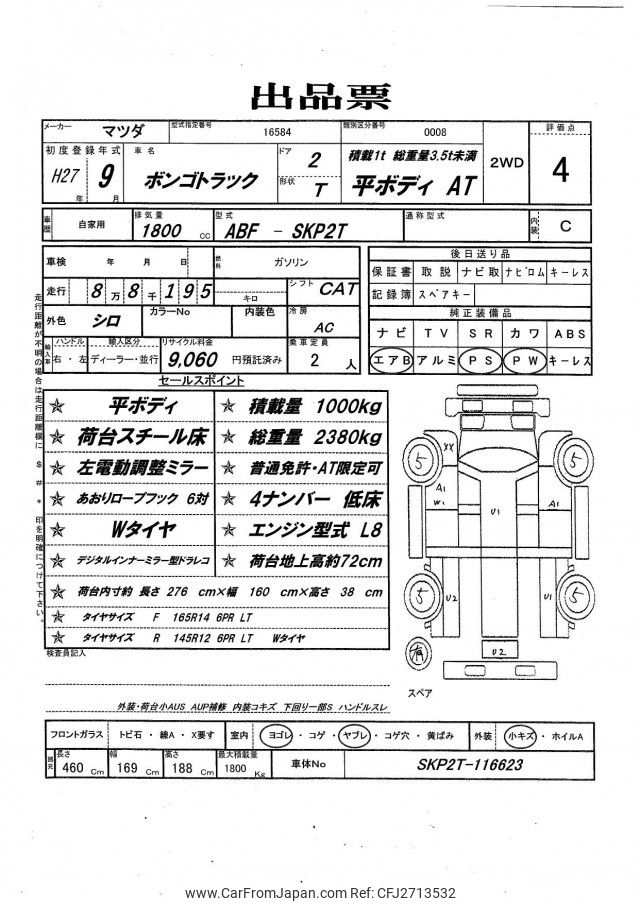 出品票
メーカー マツダ 型式指定番号 16584 類別区分番号 0008 2WD 評価点 4
初度登録年式 H27 年 9 月 車名 ボンゴトラック ドア 2 形状 T 積載1t 総重量3.5t未満 平ボディ AT
車歴 自家用 排気量 1800 CC 型式 ABF - SKP2T 通称型式 内装 C
車検 年 月 日 燃料 ガソリン
走行 8万8千195 キロ シフト CAT
外色 シロ カラーNo 内装色 冷房 AC
輸入車 ハンドル 右・左 輸入区分 ディーラー・並行 リサイクル料金 9,060 円預託済み 乗車定員 2 人
後日送り品
保証書 取説 ナビ取 ナビロム キーレス
記録簿 スペアキー
純正装備品
ナビ TV SR カワ ABS
エアB アルミ PS PW キーレス
走行距離が不明の場合は走行距離欄に $ # * 印を明確につけて下さい。
セールスポイント
☆ 平ボディ ☆ 積載量 1000kg
☆ 荷台スチール床 ☆ 総重量 2380kg
☆ 左電動調整ミラー ☆ 普通免許・AT限定可
☆ あおりロープフック 6対 ☆ 4ナンバー 低床
☆ Wタイヤ ☆ エンジン型式 L8
☆ デジタルインナーミラー型ドラレコ ☆ 荷台地上高約72cm
☆ 荷台内寸約 長さ 276 cm×幅 160 cm×高さ 38 cm
☆ タイヤサイズ F 165R14 6PR LT
☆ タイヤサイズ R 145R12 6PR LT Wタイヤ
5 XX 5
A1 W1 U1 A1
5 U2 U1 5
有 U2
スペア
検査員記入
外装・荷台小AUS AUP補修 内装コキズ 下回り一部S ハンドルスレ
フロントガラス トビ石・線A・X要す 室内 ヨゴレ・コゲ・ヤブレ・コゲ穴・黄ばみ 外装 小キズ・ホイルA
諸元 長さ 460 Cm 幅 169 Cm 高さ 188 Cm 最大積載量 1800 Kg 車体No SKP2T-116623
www.CarFromJapan.com Ref CFJ2713532